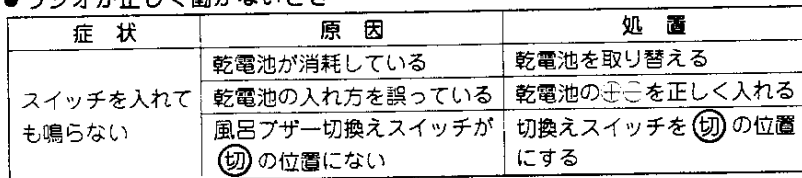 ●ラジオが正しく働かないとき
症 状 原 因 処 置
スイッチを入れても鳴らない
乾電池が消耗している 乾電池を取り替える
乾電池の入れ方を誤っている 乾電池の⊕⊖を正しく入れる
風呂ブザー切換えスイッチが 切換えスイッチを㊀切の位置